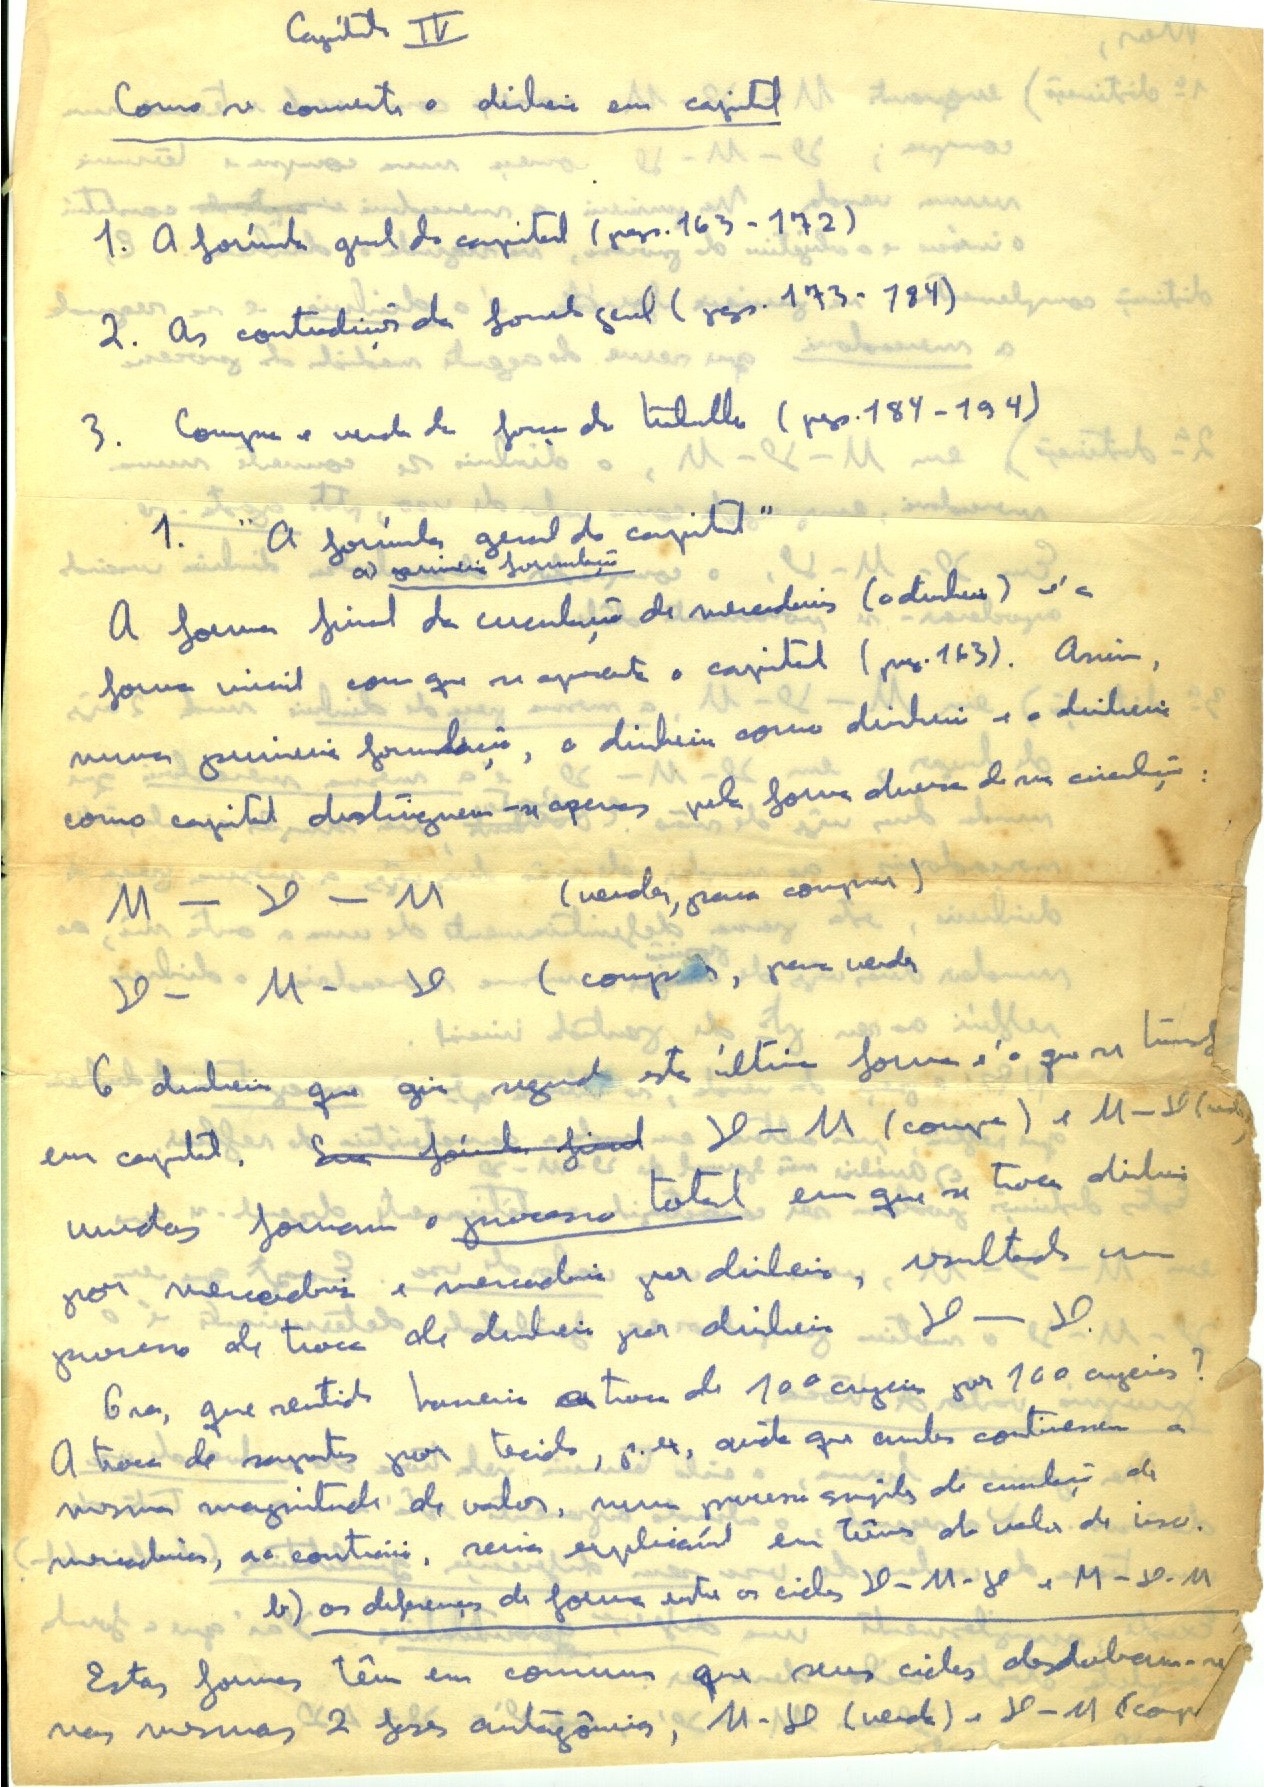 Capítulo IV
Como se converte o dinheiro em capital
1. A fórmula geral do capital (pags. 163 - 172)
2. As contradições da fórmula geral (pags. 173 - 184)
3. Compra e venda da força de trabalho (pags. 184 - 194)
1. "A fórmula geral do capital"
a) primeira formulação
A forma final da circulação de mercadorias (o dinheiro) é a
forma inicial com que se apresenta o capital (pag. 163). Assim,
numa primeira formulação, o dinheiro como dinheiro e o dinheiro
como capital distinguem-se apenas pela forma diversa de sua circulação:
M — D — M (vender, para comprar)
D - M - D (comprar, para vender
O dinheiro que gira segundo esta última forma é o que se transf
em capital. Sua fórmula final D — M (compra) e M — D (venda)
unidas formam o processo total em que se troca dinheiro
por mercadoria e mercadoria por dinheiro, resultando um
processo de troca de dinheiro por dinheiro D — D.
Ora, que sentido haveria a troca de 100 cruzeiros por 100 cruzeiros?
A troca de sapatos por tecido, p. ex, ainda que ambos contivessem a
mesma magnitude de valor, num processo simples de circulação de
mercadorias, ao contrário, seria explicável em têrmos de valor de uso.
b) as diferenças de forma entre os ciclos D - M - D e M - D - M
Estas formas têm em comum que seus ciclos desdobram-se
nas mesmas 2 fases antagônicas, M - D (venda) e D - M (comp